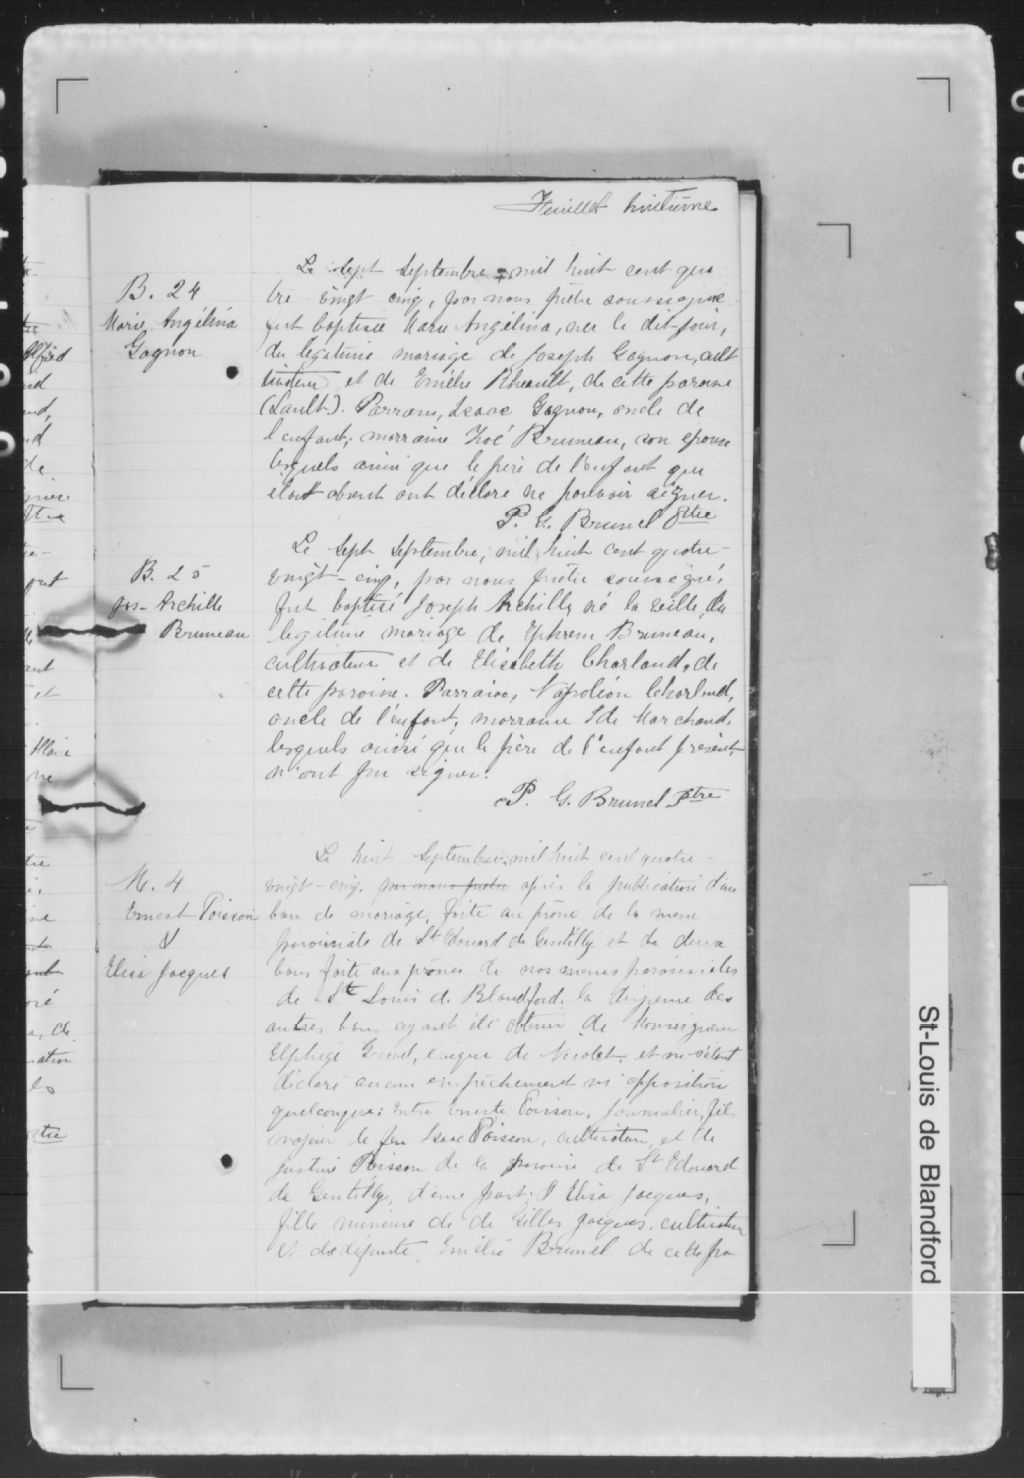 Feuillet huitième
B. 24
Marie Angélina
Gagnon
Le sept Septembre, mil huit cent qua
tre-vingt cinq, par nous prêtre soussigné
fut baptisée Marie Angélina, née le dit jour,
du légitime mariage de Joseph Gagnon, cult
tivateur et de Emélie Rheault, de cette paroisse
(Sault). Parrain, Isaac Gagnon, oncle de
l'enfant; marraine Zoé Bruneau, son épouse
lesquels ainsi que le père de l'enfant que
était absent ont déclaré ne pouvoir signer.
P. G. Brunel Ptre
B. 25
Jos-Archille
Bruneau
Le sept Septembre, mil huit cent quatre-
vingt-cinq, par nous prêtre soussigné,
fut baptisé Joseph Archille, né la veille, du
légitime mariage de Ephrem Bruneau,
cultivateur et de Elisabeth Charland, de
cette paroisse. Parrain, Napoléon Charland,
oncle de l'enfant, marraine Ide Marchand,
lesquels ainsi que le père de l'enfant présent
n'ont pu signer.
P. G. Brunel Ptre
M. 4
Ernest Poisson
&
Elisa Jacques
Le huit Septembre, mil huit cent quatre-
vingt-cinq, par nous prêtre après la publication d'un
ban de mariage, faite au prône de la messe
paroissiale de St Edouard de Gentilly et de deux
bans faite aux prônes de nos messes paroissiales
de St Louis de Blandford, la dispense des
autres bans ayant été obtenue de Monseigneur
Elphège Gravel, évêque de Nicolet, et ne s'étant
déclaré aucun empêchement ni opposition
quelconque; entre Ernest Poisson, journalier, fils
majeur de feu Isaac Poisson, cultivateur, et de
Justine Poisson de la paroisse de St Edouard
de Gentilly, d'une part; & Elisa Jacques,
fille mineure de de Gilles Jacques, cultivateur
et de défunte Emélie Brunel de cette pa
St-Louis de Blandford